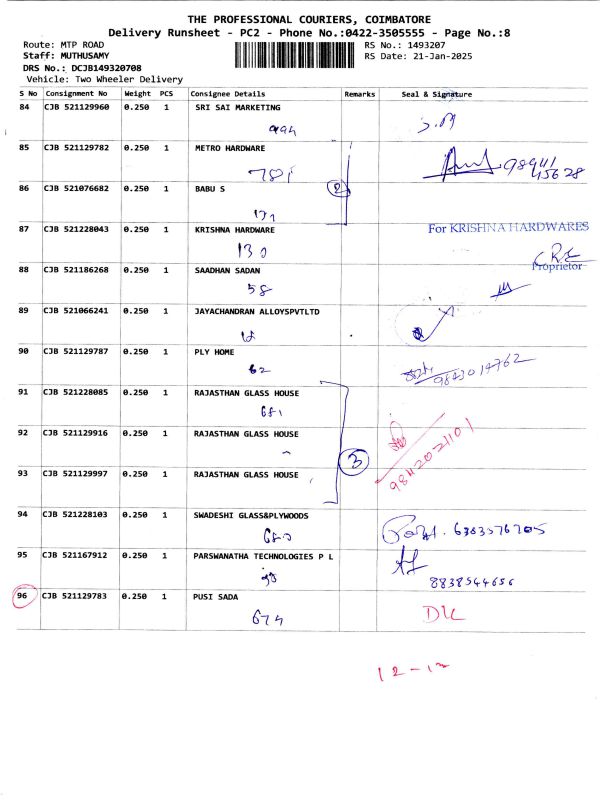 THE PROFESSIONAL COURIERS, COIMBATORE
Delivery Runsheet - PC2 - Phone No.:0422-3505555 - Page No.:8
Route: MTP ROAD RS No.: 1493207
Staff: MUTHUSAMY RS Date: 21-Jan-2025
DRS No.: DCJB149320708
Vehicle: Two Wheeler Delivery
S No Consignment No Weight PCS Consignee Details Remarks Seal & Signature
84 CJB 521129960 0.250 1 SRI SAI MARKETING
85 CJB 521129782 0.250 1 METRO HARDWARE
781 98941
45628
86 CJB 521076682 0.250 1 BABU S
2
171
87 CJB 521228043 0.250 1 KRISHNA HARDWARE For KRISHNA HARDWARES
130
Proprietor
88 CJB 521186268 0.250 1 SAADHAN SADAN
58
89 CJB 521066241 0.250 1 JAYACHANDRAN ALLOYSPVTLTD
90 CJB 521129787 0.250 1 PLY HOME
62 9843014762
91 CJB 521228085 0.250 1 RAJASTHAN GLASS HOUSE
681
92 CJB 521129916 0.250 1 RAJASTHAN GLASS HOUSE
3
93 CJB 521129997 0.250 1 RAJASTHAN GLASS HOUSE
94 CJB 521228103 0.250 1 SWADESHI GLASS&PLYWOODS
6383576705
95 CJB 521167912 0.250 1 PARSWANATHA TECHNOLOGIES P L
8838544656
96 CJB 521129783 0.250 1 PUSI SADA
674
12-12